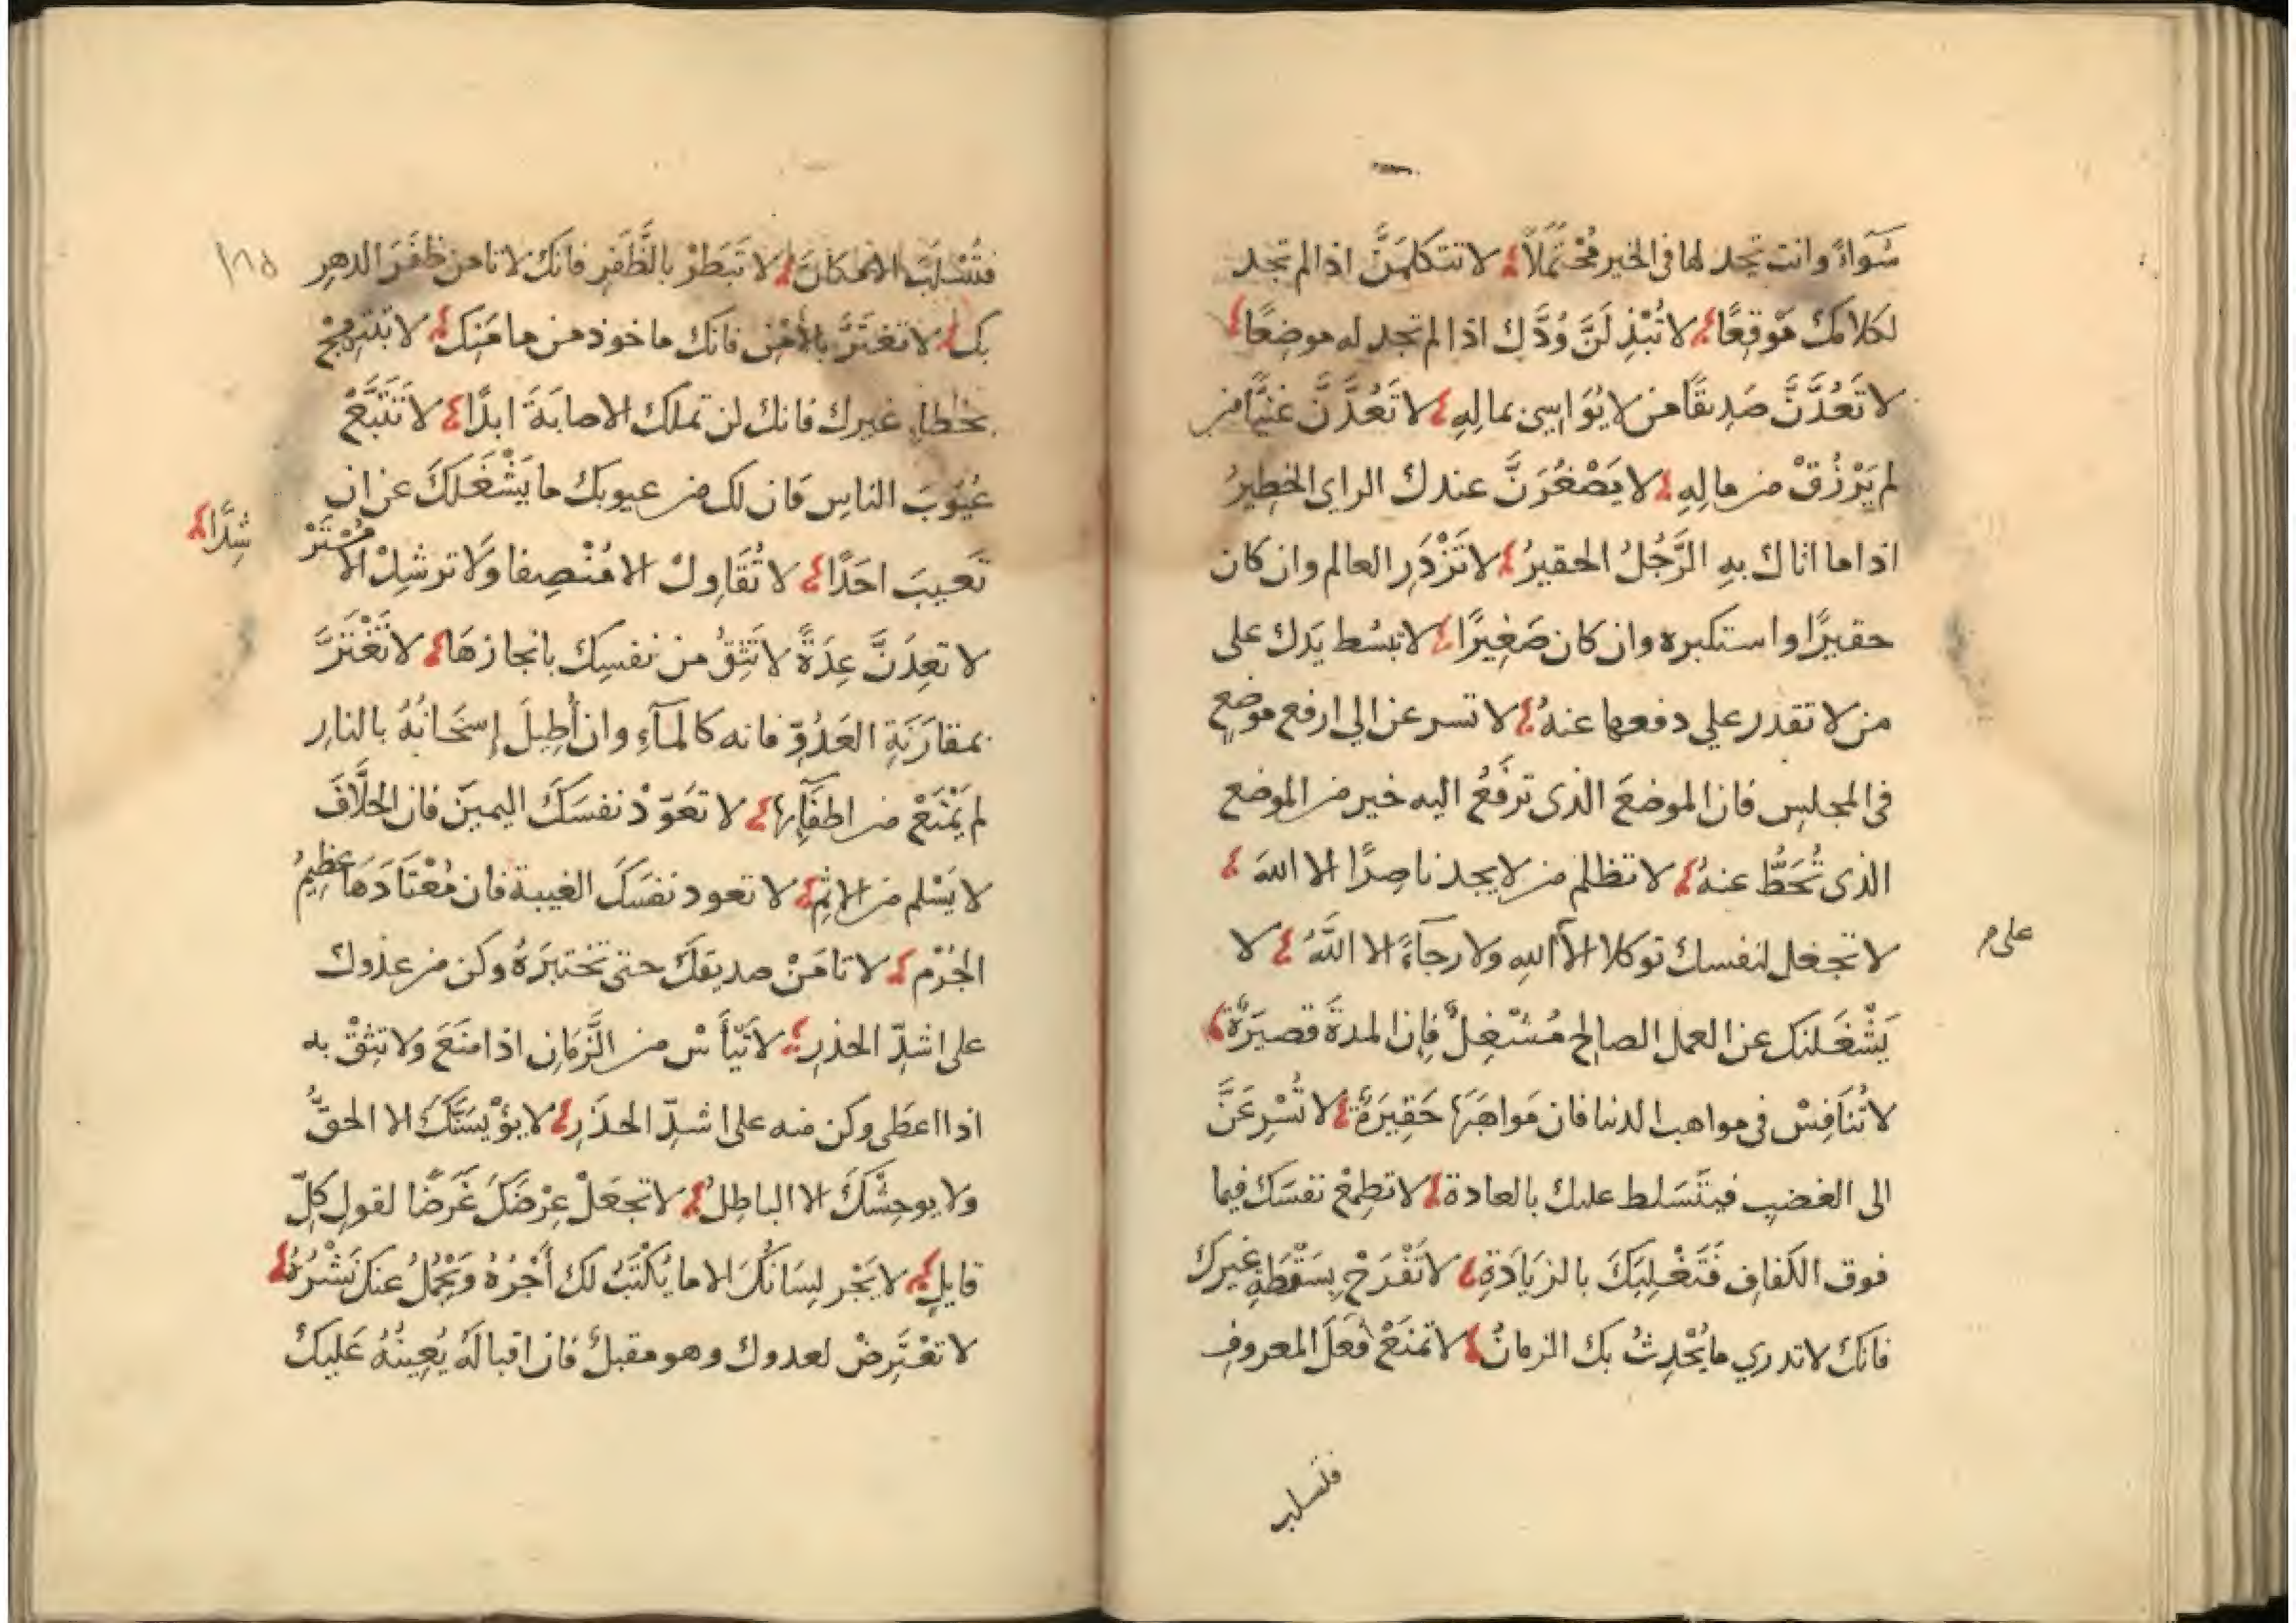 سَوَاءً وانت تجد لها فى الخير مُحْتَمَلًا لا تتكلمَنَّ اذا لم تجد
لكلامك مَوْقِعًا لا تُبْذِلَنَّ وُدَّك اذا لم تجد له موضِعًا
لا تَعُدَّنَّ صَدِيقًا من لا يُوَاسِى بمالِهِ لا تَعُدَّنَّ غنيًّا من
لم يَرْزُقْ من مالِهِ لا يَصْغُرَنَّ عندك الراى الخطِيرُ
اذا ما اتاك بهِ الرَّجُلُ الحقيرُ لا تَزْدَرِ العالم وان كان
حقيرًا واستكبره وان كان صَغِيرًا لا تبسُط يَدك على
من لا تقدر علي دفعها عنهُ لا تسرعن الي ارفع موضعٍ
فى المجلِس فان الموضعَ الذى ترفَعُ اليه خير من الموضع
الذى تُحَطُّ عنهُ لا تظلم من لا يجد ناصِرًا الا اللهَ
لا تجعل لنفسك توكلا الا الله ولا رجآءً الا اللَّهُ لا
على م
يَشْغَلنك عن العمل الصالح مُشْغِلٌ فإن المدةَ قصيَرةٌ
لا تُنَافِسْ فى مواهب الدنيا فان مَواهَبَها حَقِيَرةٌ لا تُسْرِعَنَّ
الى الغضبِ فيتَسَلط عليك بالعادة لا تطمِعْ نفسَك فيما
فوق الكَفافِ فَتَغْلِبَكَ بالزيَادَةِ لا تَفْرَحْ بِسَقْطَةِ غيرك
فانك لا تدري ما يُحْدِثُ بك الزمانُ لا تمنَعْ فعلَ المعروفِ
فتسلب
١٨٥
فتُسْلَبَ الامكانَ لا تَبَطرْ بالظَّفَرِ فانك لا تامن ظَفَرَ الدهرِ
بك لا تغتَرَّ بالأمْنِ فانك ماخوذ من مامَنِك لا تبتهِجْ
بخطاءِ غيرك فانك لن تملك الاصابَةَ ابدًا لا تَتَبَّعْ
عُيُوبَ الناسِ فان لك من عيوبك ما يَشْغَلكَ عن ان
تَعيبَ احَدًا لا تُقَاوِلْ الا مُنْصِفا وَلا ترشِدْ الا مُسْتَرْ
شِدًا
لا تعِدَنَّ عِدَةً لا تَثِقُ من نفسِك بانجازهَا لا تَغْتَرَّ
بمقارَنَةِ العَدُوِّ فانه كالمآءِ وان أطِيلَ إسخَانُهُ بالنارِ
لم يَمْنَعْ من اطفَآئها لا تعَوِّدْ نفسَكَ اليمينَ فان الحلَّافَ
لا يَسْلم من الاثِمْ لا تعود نفسَكَ الغيبة فان مُعْتَادَهَا عظيمُ
الجُرْم لا تامَنْ صديقكَ حتى تختبِرَهُ وكن من عدوك
على اشدِّ الحذرِ لا تَيْأَسْ من الزَّمَانِ اذا منَعَ ولا تثِقْ به
اذا اعطَى وكن منه على اشدِّ الحذَرِ لا يؤْيسَنَّكَ الا الحقُّ
ولا يوحِشَّكَ الا الباطِلُ لا تجعَلْ عِرْضَكَ غَرَضًا لقولِ كلِّ
قايلٍ لا يَجْرِ لِسَانُكَ الا ما يُكْتَبُ لك أَجْرُهُ وَيَجْمُلُ عنك نَشْرُهُ
لا تعْتَرِضْ لعدوك وهو مقبلٌ فان اقبالَهُ يُعِينُهُ عَليكَ